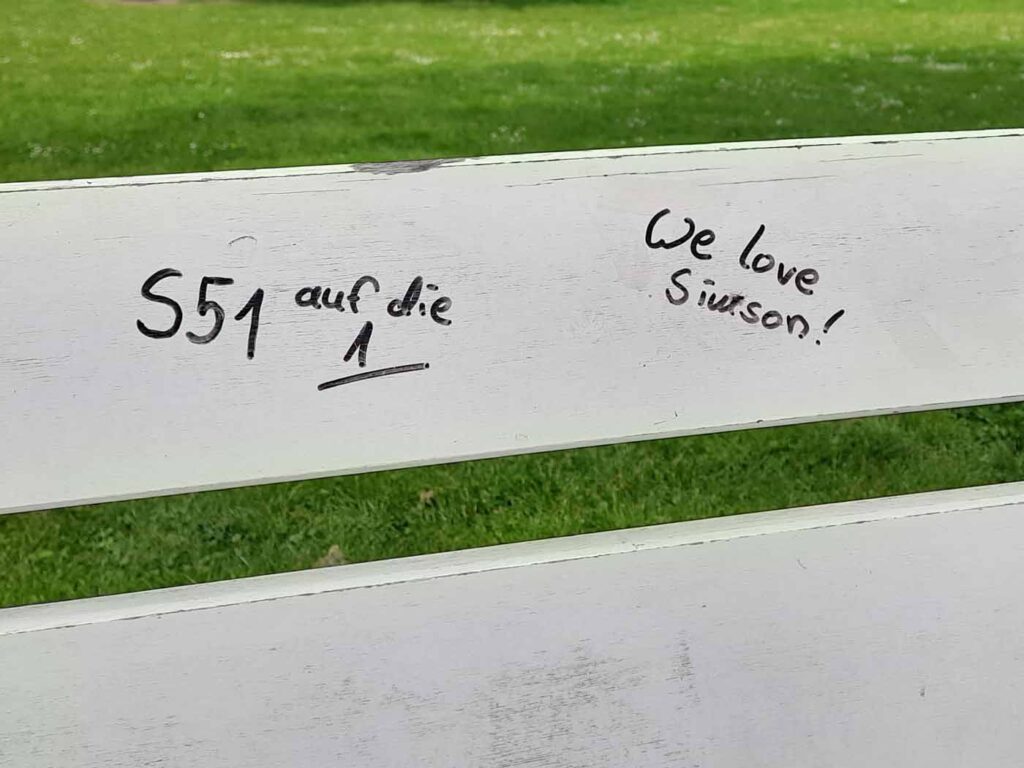 S51 auf die
1
We love
Simson!